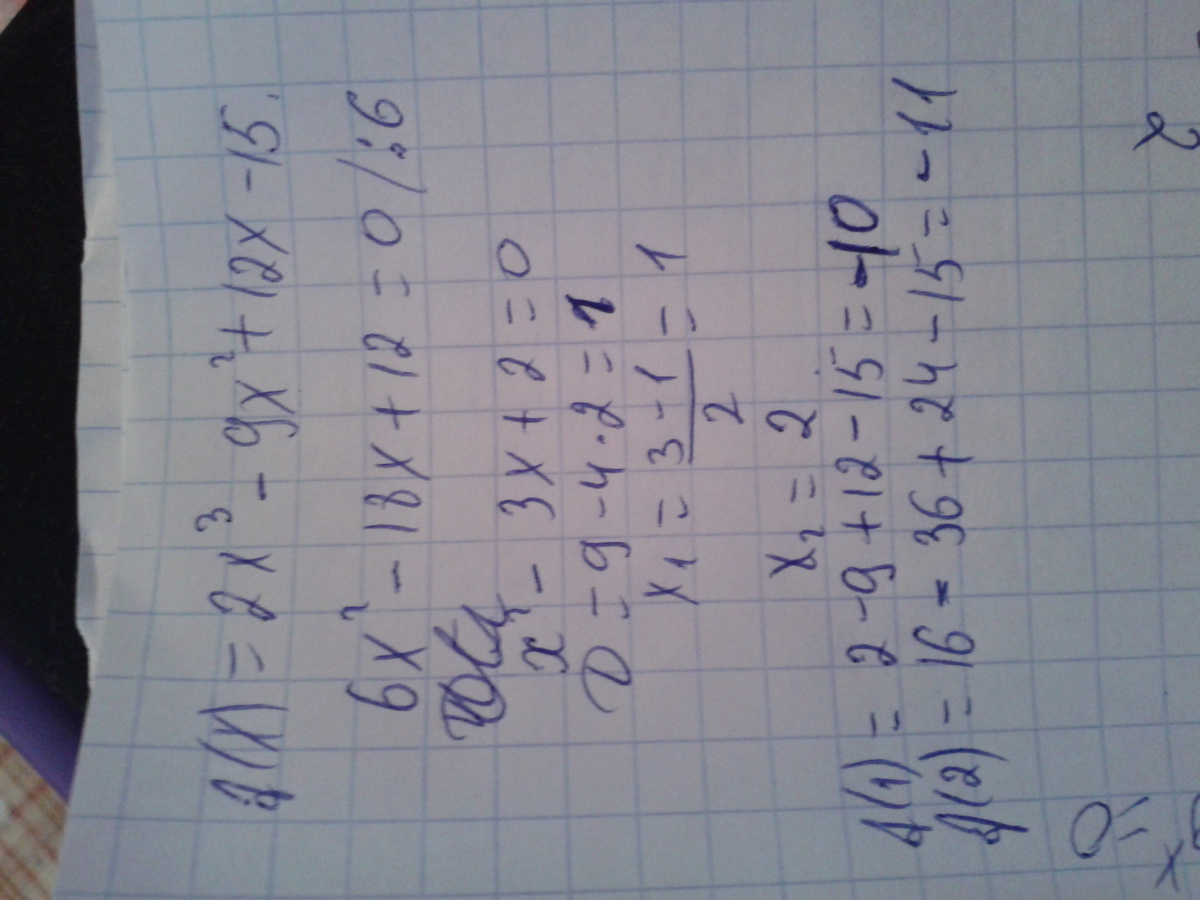 f(x) = 2x³ - 9x² + 12x - 15.
6x² - 18x + 12 = 0 /:6
x² - 3x + 2 = 0
D = 9 - 4·2 = 1
x₁ = (3 - 1)/2 = 1
x₂ = 2
f(1) = 2 - 9 + 12 - 15 = -10
f(2) = 16 - 36 + 24 - 15 = -11